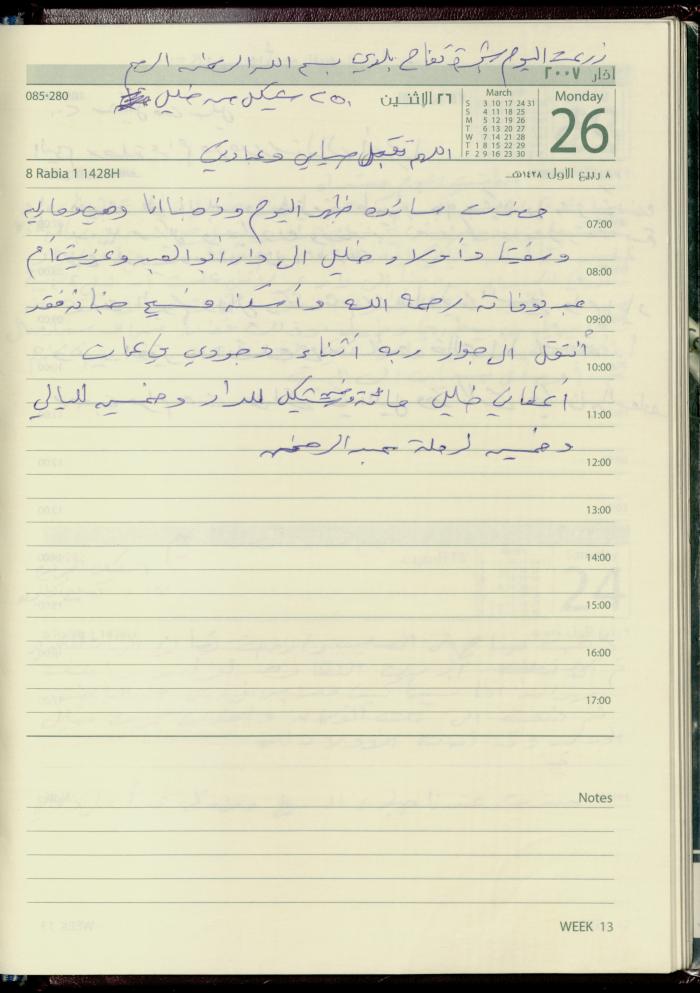 زرعت اليوم شجرة تفاح بلدي بسم الله الرحمن الرحيم
آذار ٢٠٠٧
085-280
٢٥٠ شيكل من خليل
٢٦ الإثنين
March
S 3 10 17 24 31
S 4 11 18 25
M 5 12 19 26
T 6 13 20 27
W 7 14 21 28
T 1 8 15 22 29
F 2 9 16 23 30
Monday
26
اللهم تقبل صيامي وعبادتي
8 Rabia 1 1428H
٨ ربيع الاول ١٤٢٨هـ
حضرت سائده ظهر اليوم وذهبنا انا وهي وماريه
07:00
وأولاد خليل الى دار أبو العبد وعزيت أم
08:00
عبد بوفاته رحمه الله وأسكنه فسيح جنانه فقد
09:00
أنتقل الى جوار ربه أثناء وجودي في عمان
10:00
أعطاني خليل مائة شيكل للدار وخمسين لليالي
11:00
وخمسين لرحلة عبد الرحمن
12:00
13:00
14:00
15:00
16:00
17:00
Notes
WEEK 13